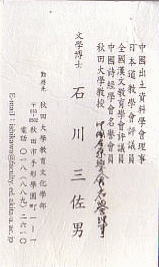 中國出土資料學會理事
日本道教學會評議員
全國漢文教育學會評議員
中國詩經學會名譽會員
秋田大學教授
文學博士
石川三佐男
勤務先
秋田大學教育文化學部
秋田市手形學園町一-一
電話 〇一八-八八九-二六一〇